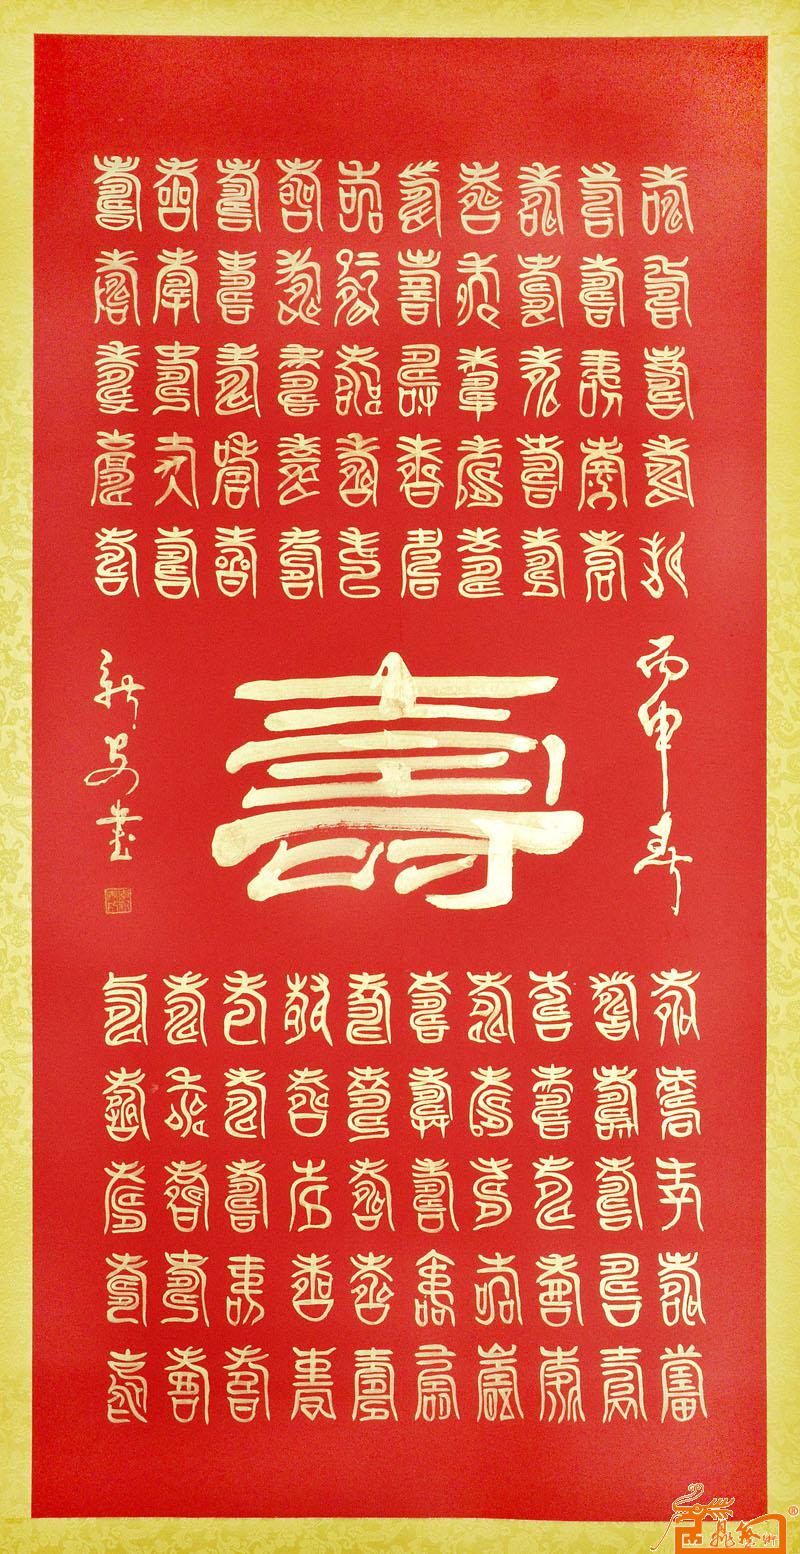 壽壽壽壽壽壽壽壽壽壽
壽壽壽壽壽壽壽壽壽壽
壽壽壽壽壽壽壽壽壽壽
壽壽壽壽壽壽壽壽壽壽
壽壽壽壽壽壽壽壽壽壽
丙申春
壽
新安書
壽壽壽壽壽壽壽壽壽壽
壽壽壽壽壽壽壽壽壽壽
壽壽壽壽壽壽壽壽壽壽
壽壽壽壽壽壽壽壽壽壽
壽壽壽壽壽壽壽壽壽壽